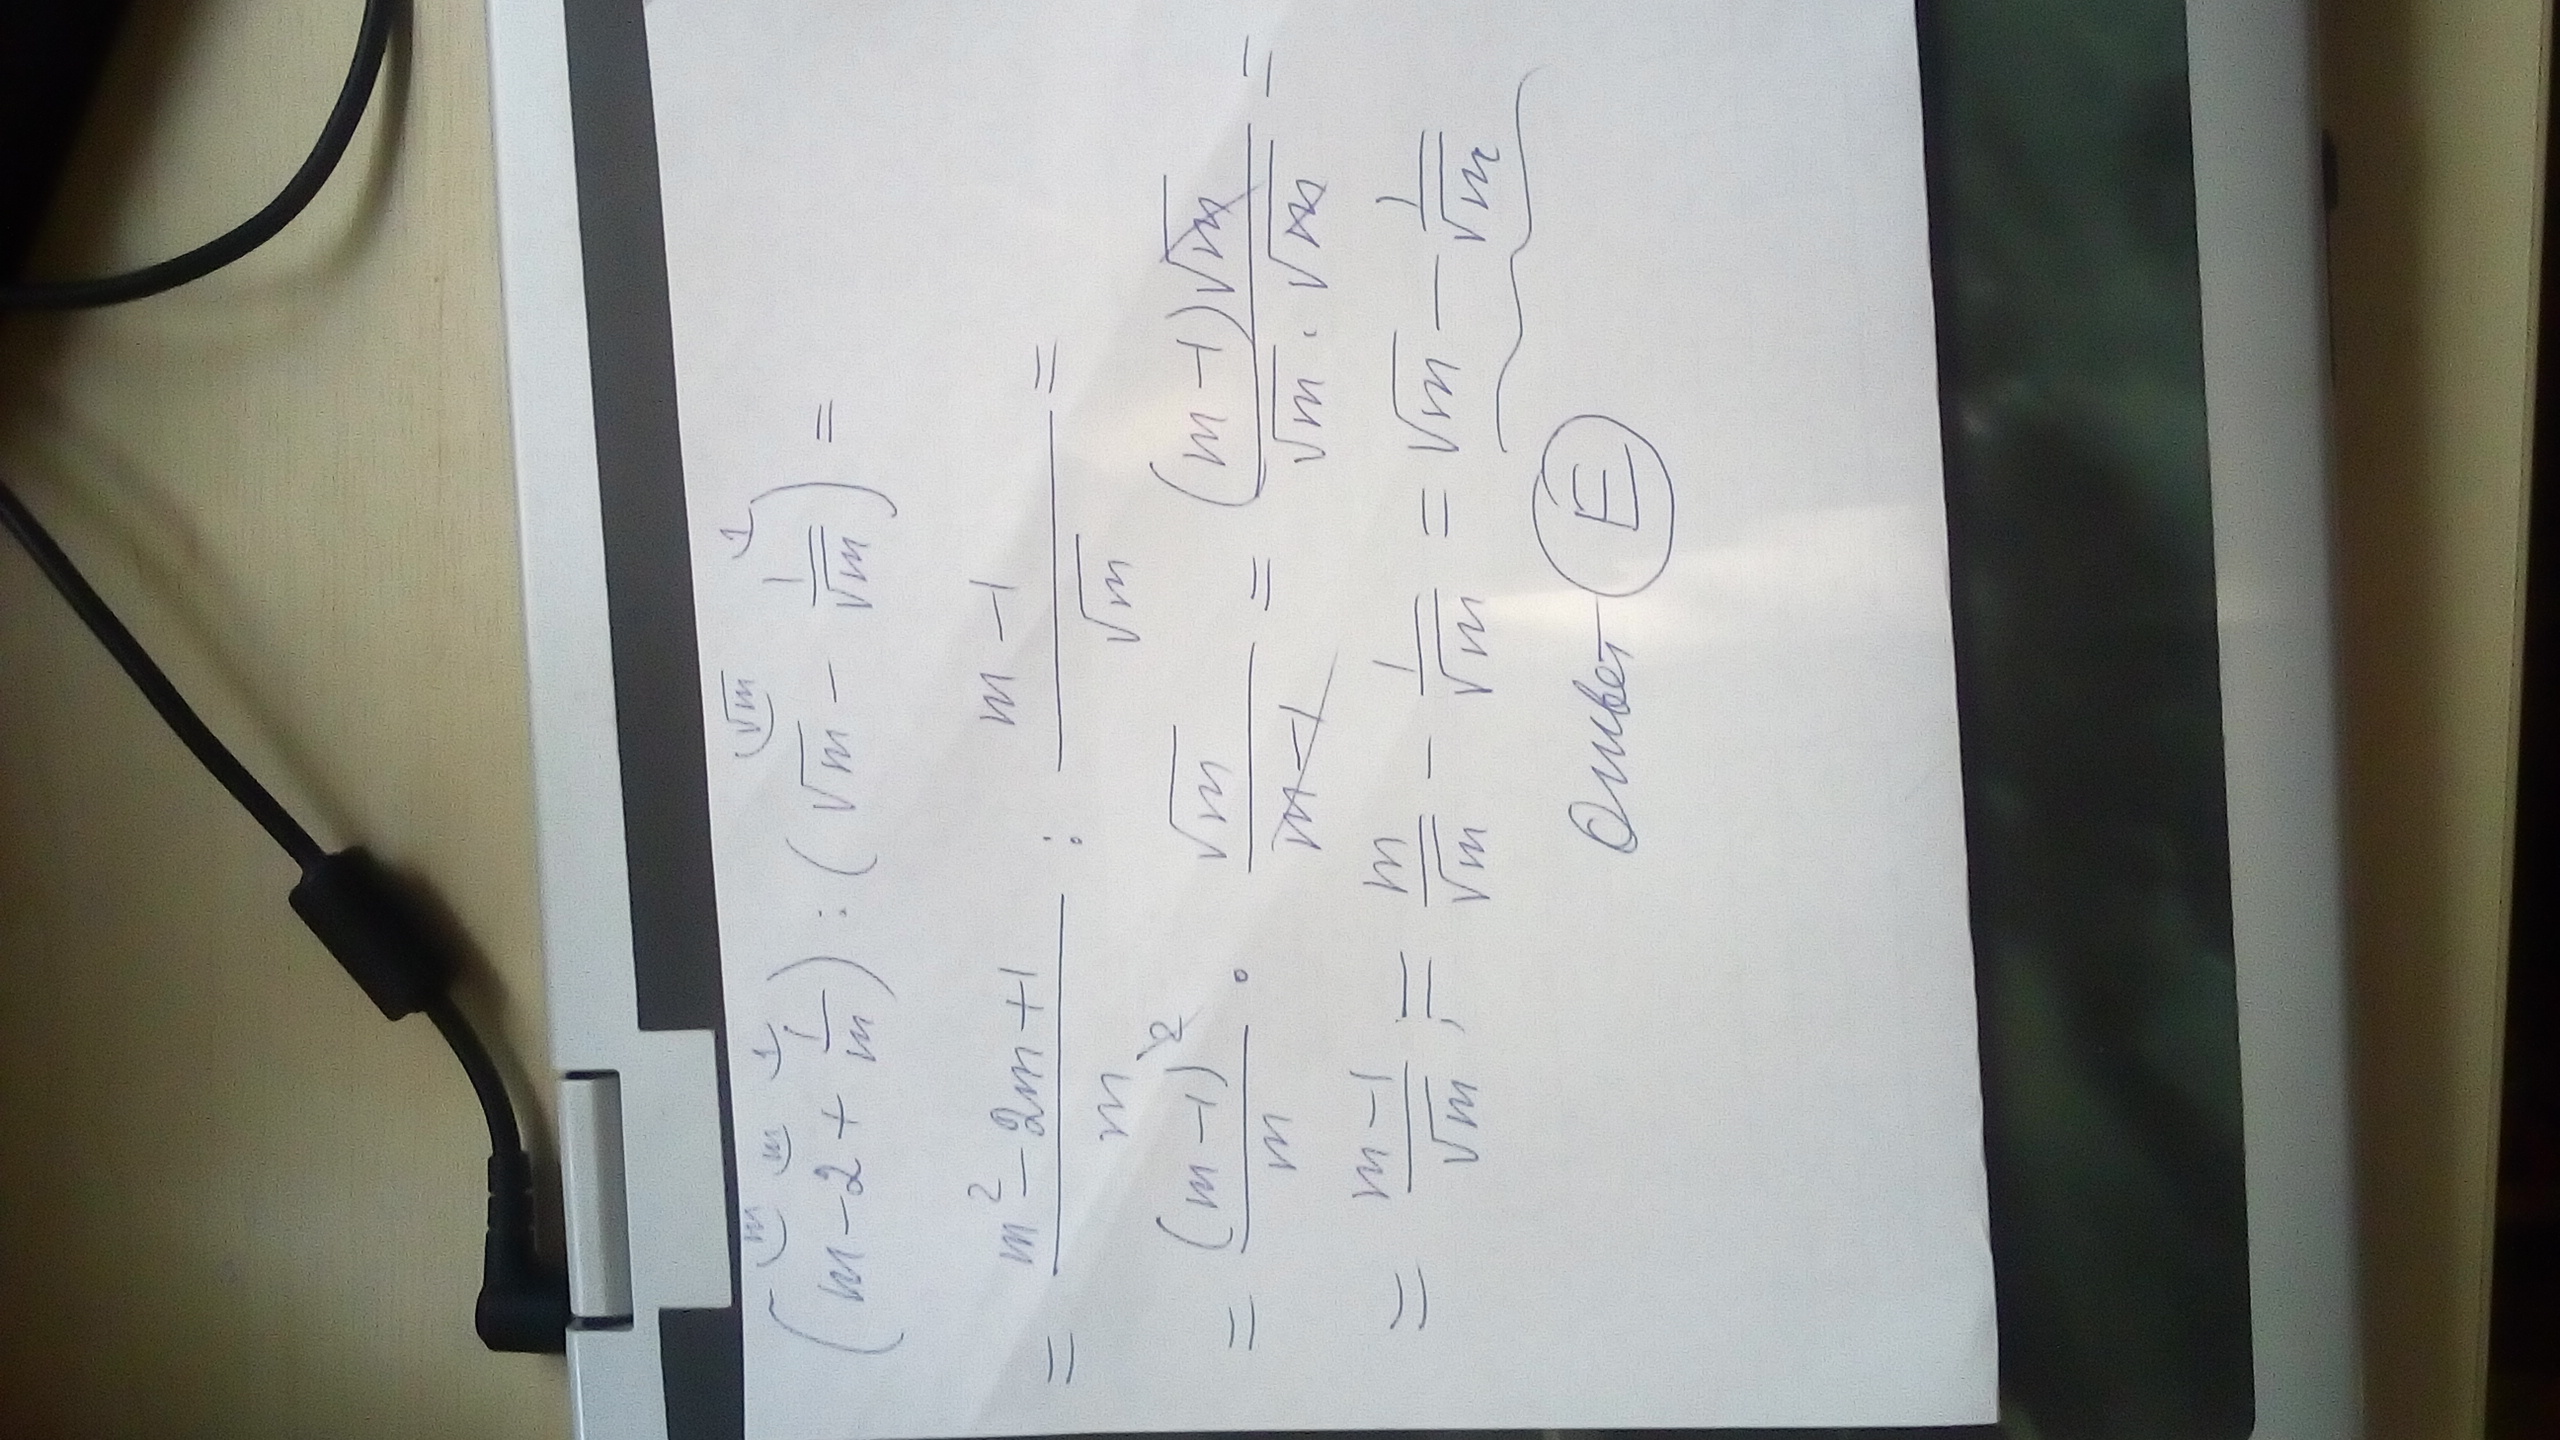 (m - 2 + 1/m) : (√m - 1/√m) =
= (m² - 2m + 1)/m : (m - 1)/√m =
= (m - 1)²/m · √m/(m - 1) = (m - 1)√m/(√m · √m) =
= (m - 1)/√m = m/√m - 1/√m = √m - 1/√m
Ответ E